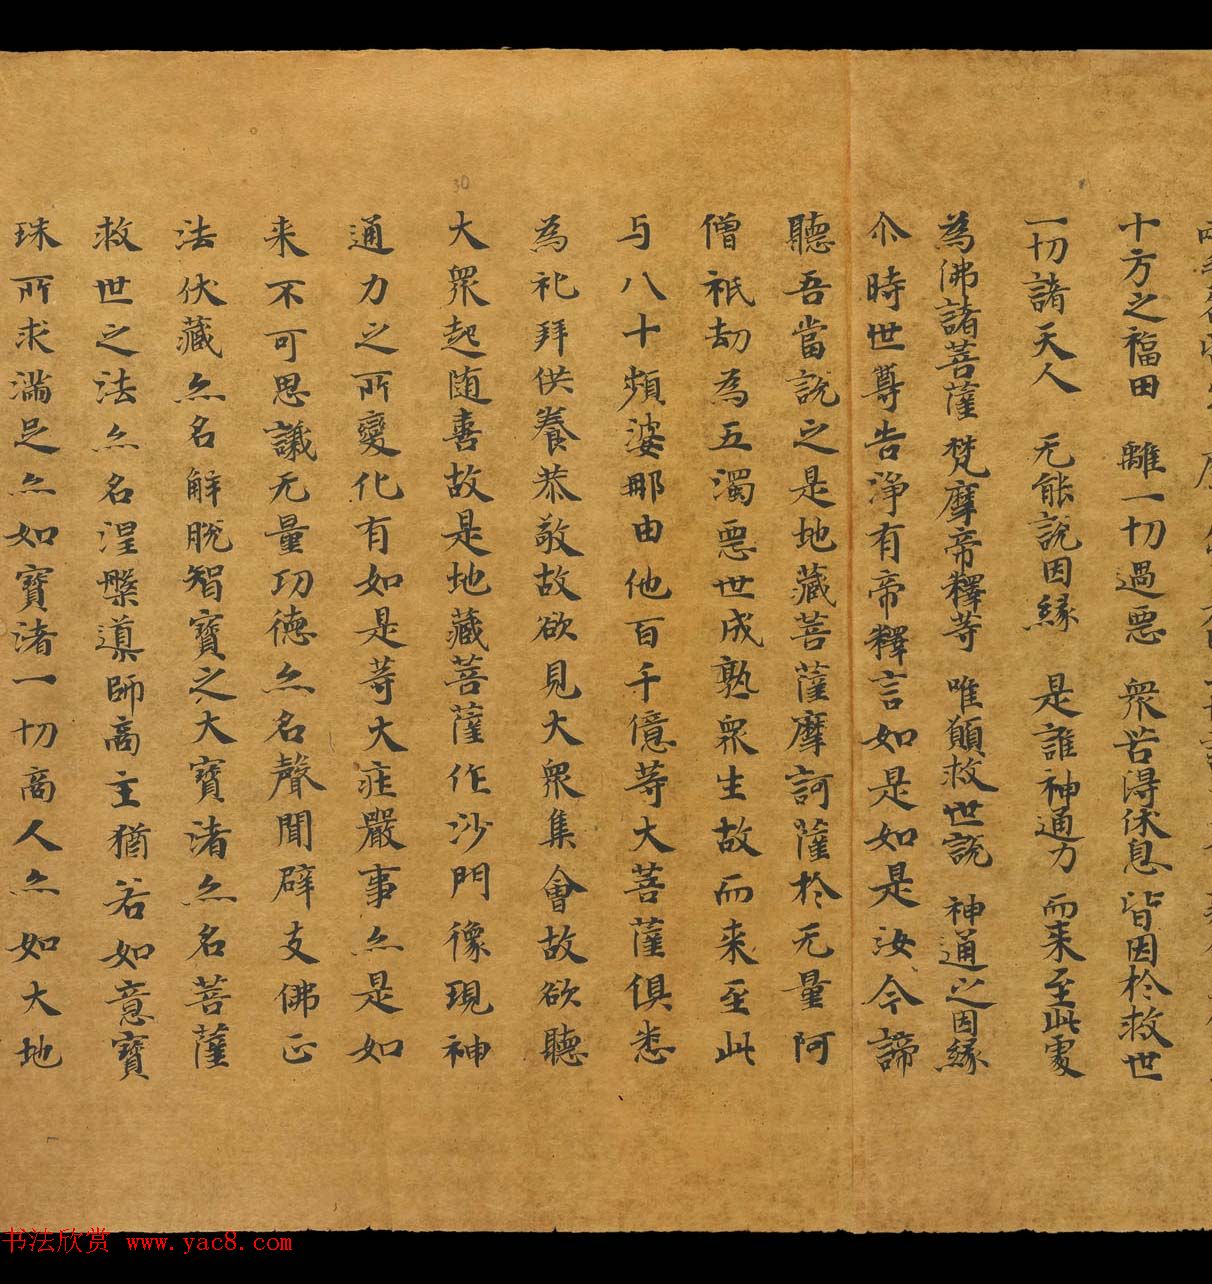 十方之福田　離一切過惡　衆苦得休息　皆因於救世
一切諸天人　无能說因緣　是誰神通力　而来至此處
為佛諸菩薩　梵摩帝釋䓁　唯願救世說　神通之因緣
尒時世尊告淨有帝釋言如是如是汝今諦
聽吾當說之是地藏菩薩摩訶薩於无量阿
僧祇劫為五濁惡世成熟衆生故而来至此
与八十頻婆那由他百千億䓁大菩薩俱悉
為礼拜供養恭敬故欲見大衆集會故欲聽
大衆起随喜故是地藏菩薩作沙門像現神
通力之所變化有如是䓁大莊嚴事亦是如
来不可思議无量功德亦名聲聞辟支佛正
法伏藏亦名解脫智寶之大寶渚亦名菩薩
救世之法亦名涅槃導師商主猶若如意寶
珠所求滿足亦如寶渚一切商人亦如大地
30
书法欣赏 www.yac8.com